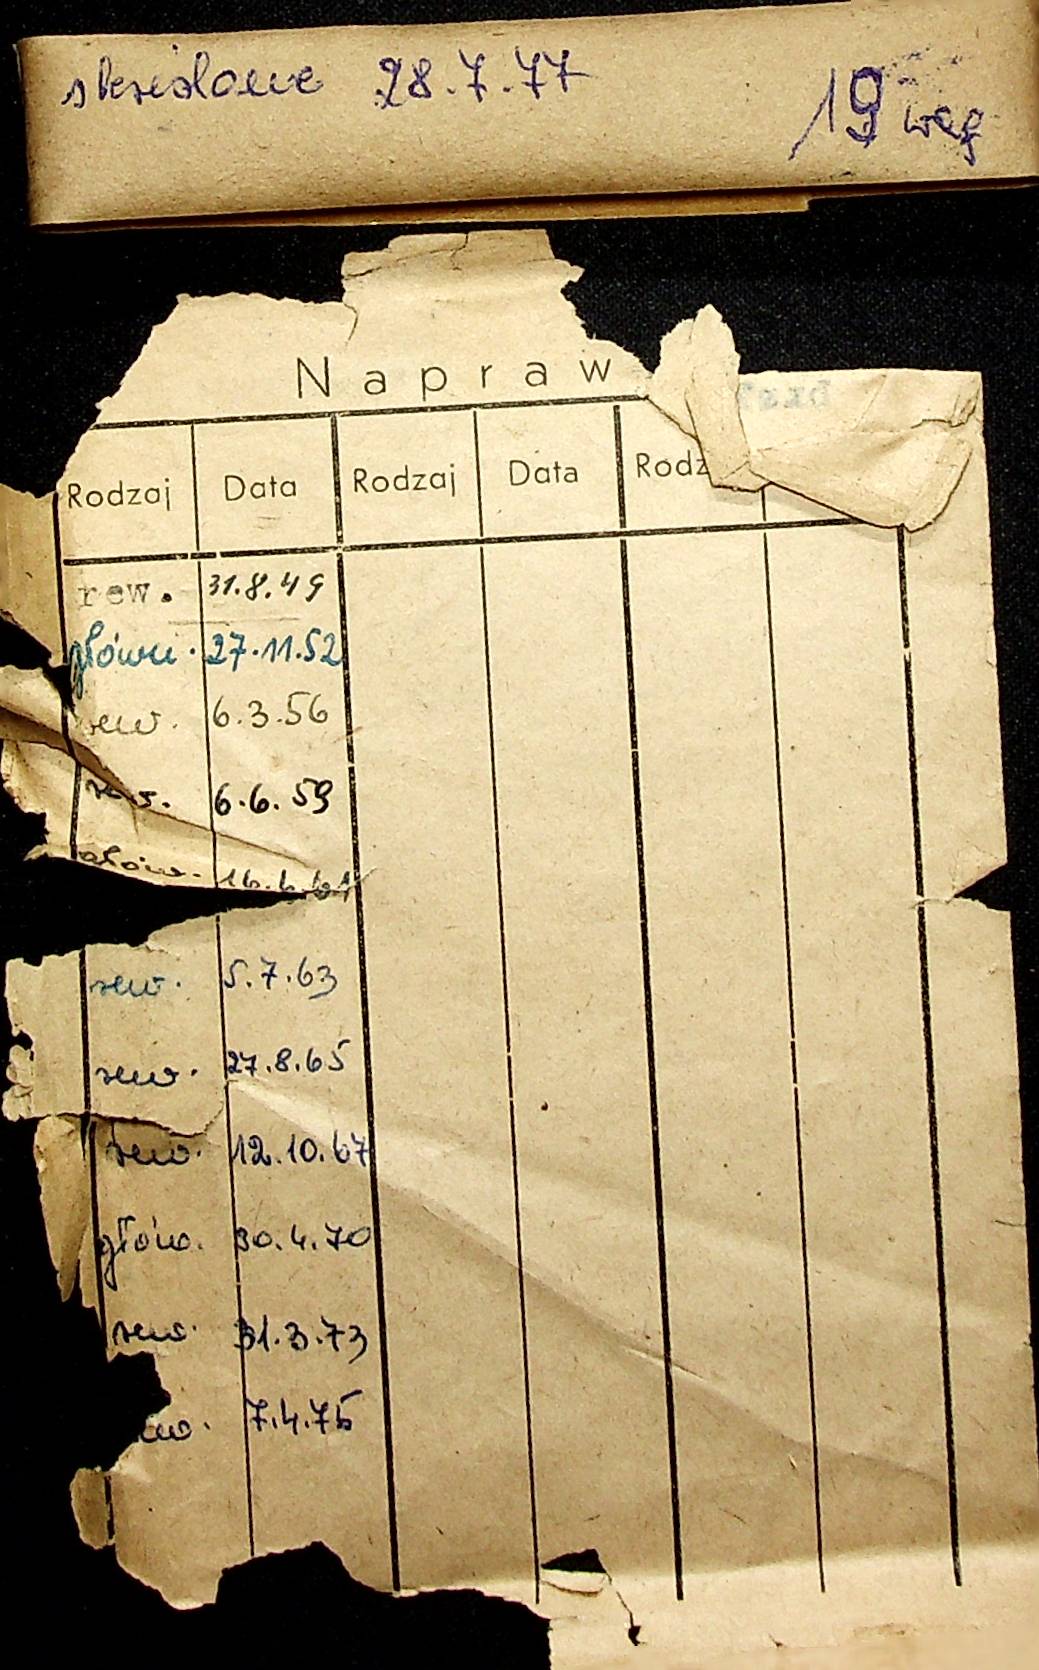 skreślone 28.7.77
19 wag
Napraw
Rodzaj Data Rodzaj Data Rodz
rew. 31.8.49
główn. 27.11.52
rew. 6.3.56
rew. 6.6.59
główn. 16.6.61
rew. 5.7.63
rew. 27.8.65
rew. 12.10.67
głów. 30.4.70
rew. 31.3.73
ew. 7.4.75